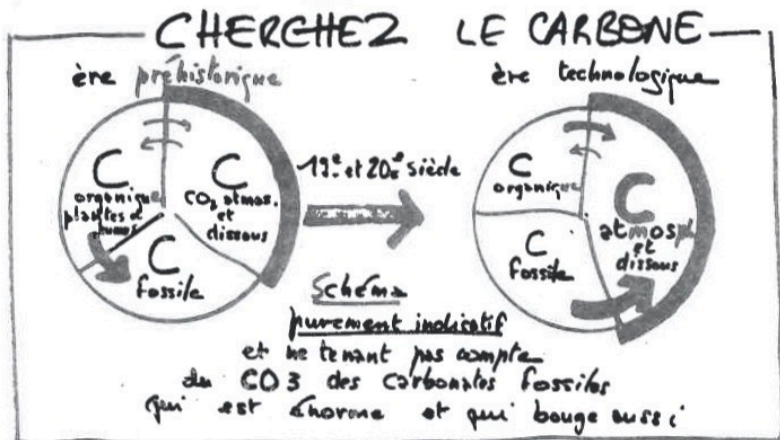 CHERCHEZ LE CARBONE
ère préhistorique
ère technologique
C
organique
plantes et
humus
C
CO2 atmos.
et
dissous
C
fossile
19e et 20e siècle
C
organique
C
fossile
C
atmosph
et
dissous
Schéma
purement indicatif
et ne tenant pas compte
du CO3 des carbonates fossiles
qui est énorme et qui bouge aussi